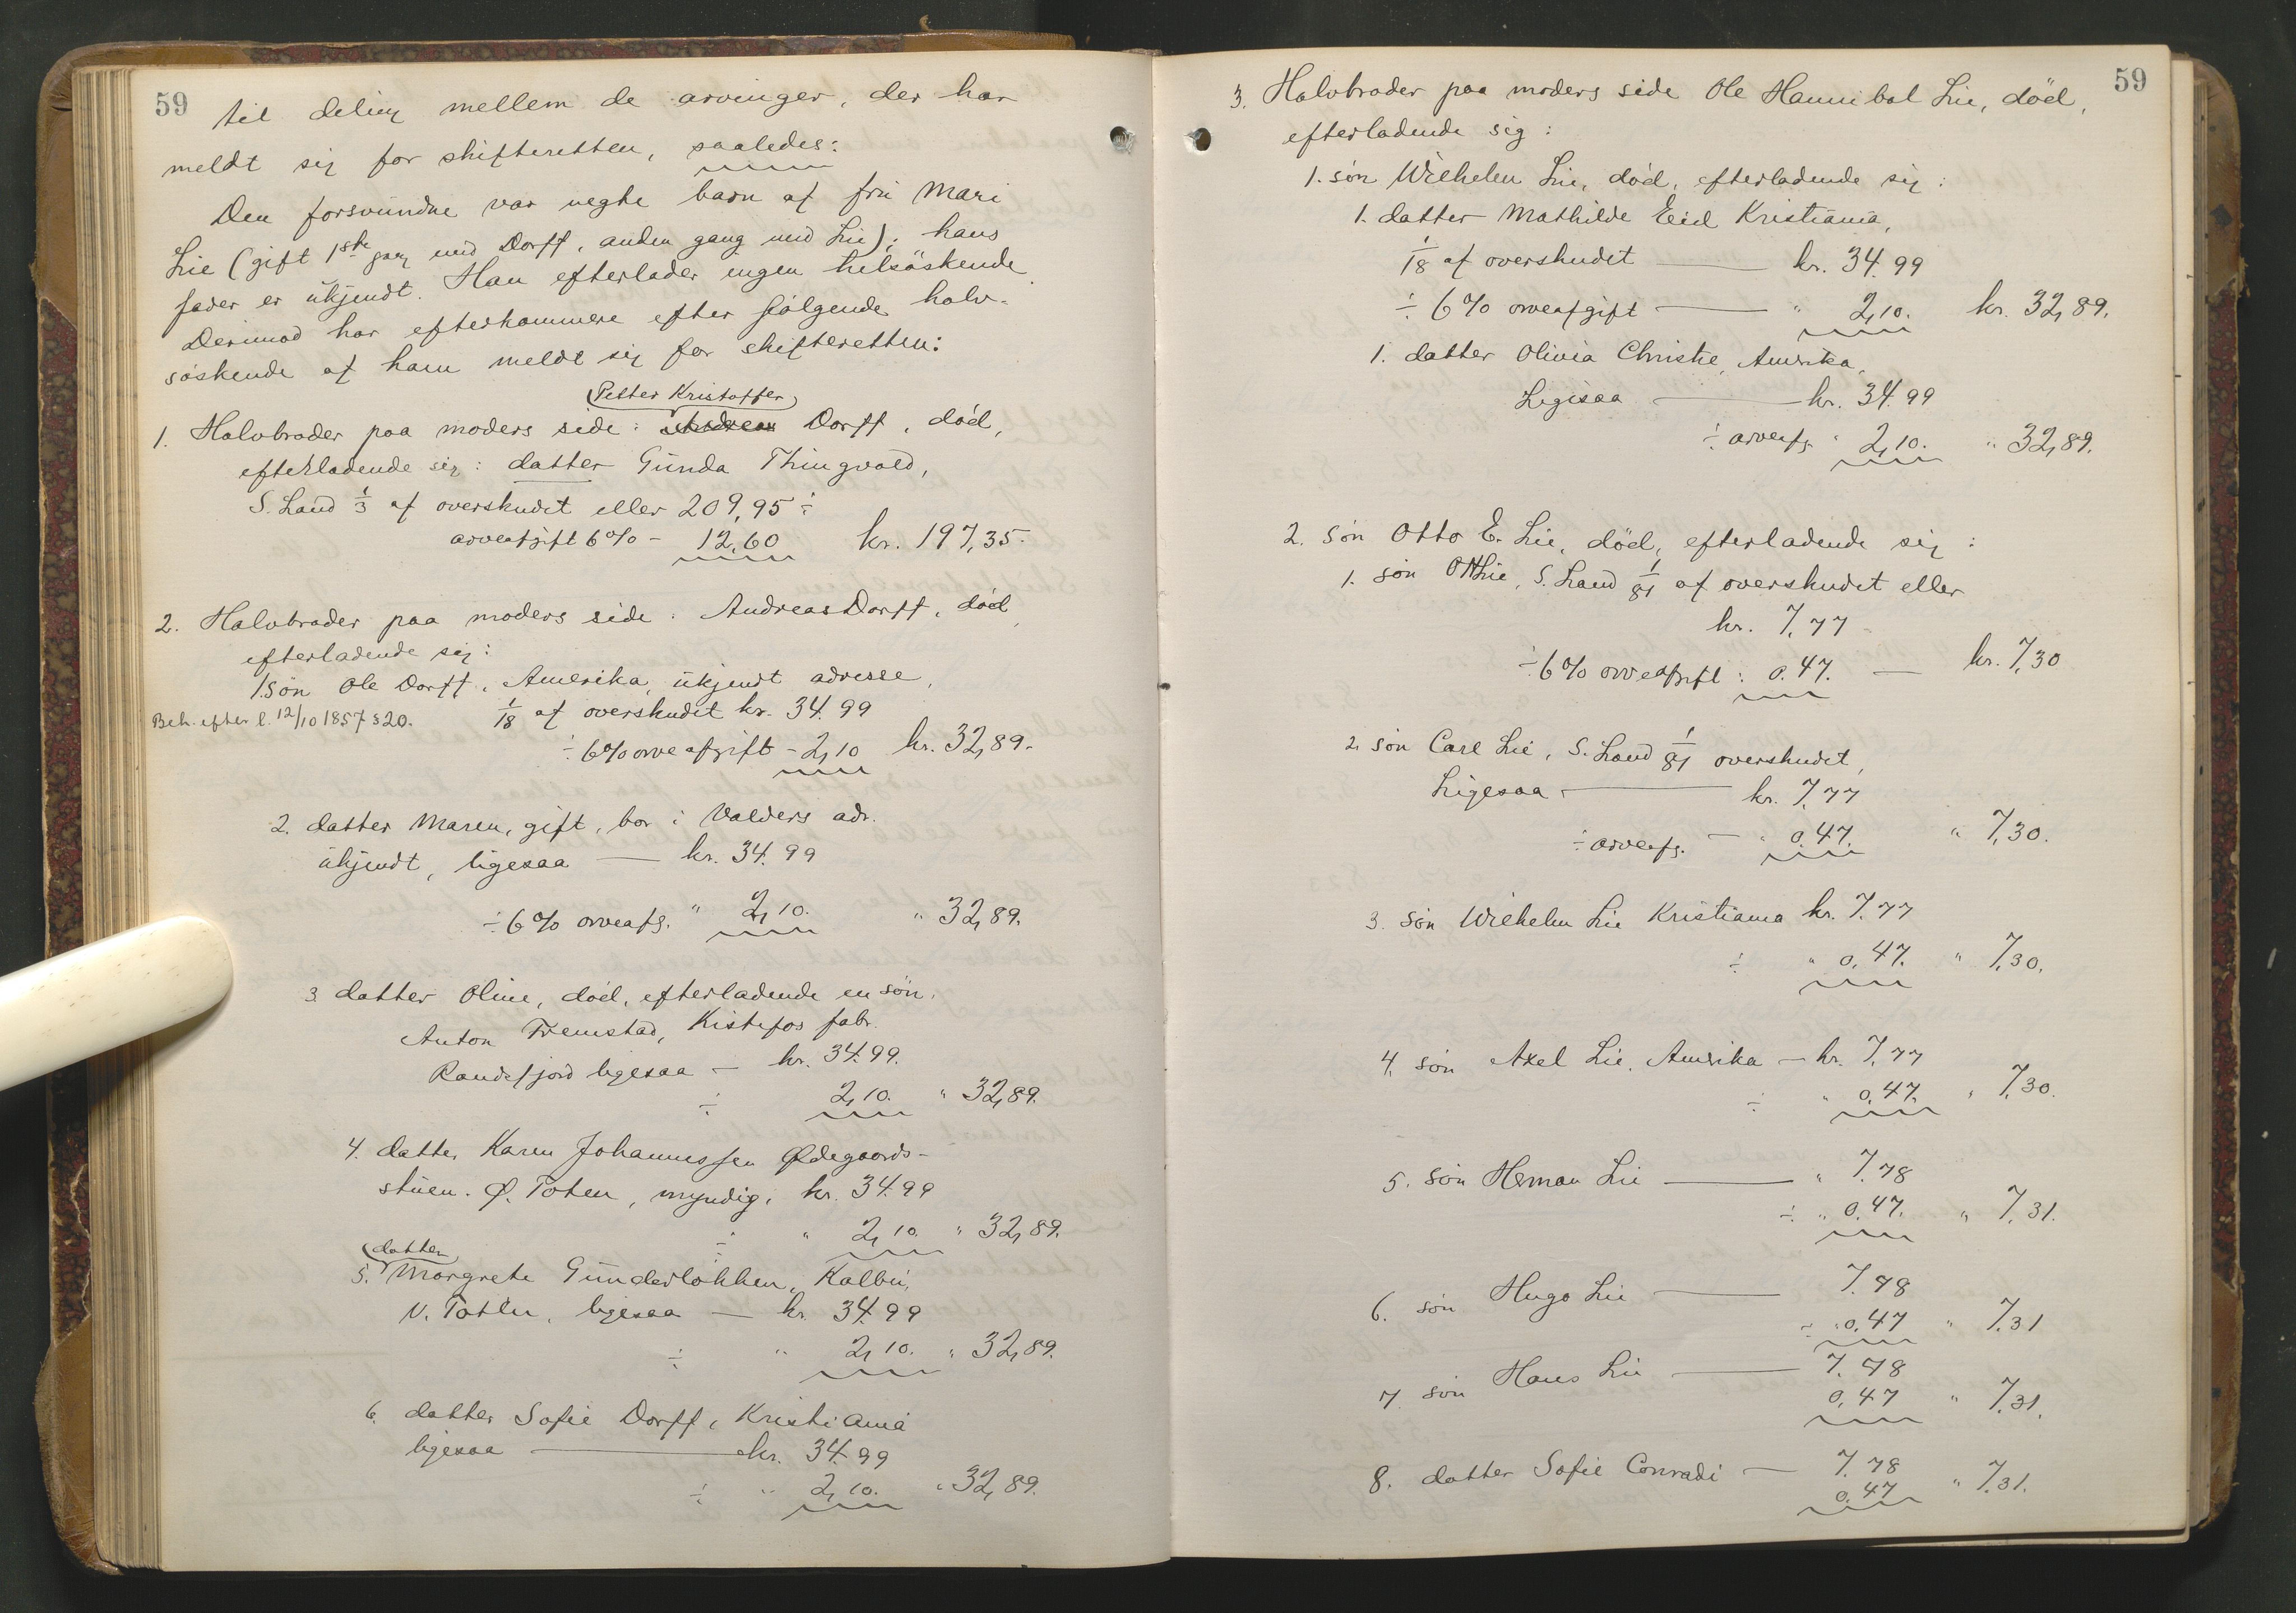 59
til deling mellem de arvinger, der har
meldt sig for skifteretten, saaledes:
Den forsvundne var uegte barn af fru Mari
Lie (gift 1ste gang med Dorff, anden gang med Lie); hans
fader er ukjendt. Han efterlader ingen helsøskende
Derimod har efterkommere efter følgende halv-
søskende af ham meldt sig for skifteretten:
Petter Kristoffer
1. Halvbroder paa moders side: Andreas Dorff, död,
efterladende sig: datter Gunda Thingvold,
S. Land 1/3 af overskudet eller 209,95 ÷
arveafgift 6% - 12,60 kr. 197,35.
2. Halvbroder paa moders side: Andreas Dorff, död,
efterladende sig:
1 søn Ole Dorff, Amerika, ukjendt adresse,
Beh. efter l. 12/10 1857 § 20. 1/18 af overskudet kr. 34.99
÷ 6% arveafgift - 2,10 kr. 32,89.
2. datter Maren, gift, bor i Valders adr.
ukjendt, ligesaa — kr. 34.99
÷ 6% arveafg. " 2,10. " 32,89.
3 datter Oline, död, efterladende en søn,
Anton Fremstad, Kistefos fabr.
Randsfjord ligesaa — kr. 34.99.
÷ 2,10. " 32,89.
4. datter Karen Johannessen Ødegaards-
stuen. Ø. Toten, myndig, kr. 34.99
÷ " 2,10. " 32,89.
datter
5. Margrete Gunderløkken, Kolbu,
V. Toten, ligesaa — kr. 34.99
÷ " 2,10. " 32,89.
6. datter Sofie Dorff, Kristiania
ligesaa — kr. 34.99
÷ " 2,10. " 32,89.
59
3. Halvbroder paa moders side Ole Hannibal Lie, död,
efterladende sig:
1. søn Wilhelm Lie, död, efterladende sig:
1. datter Mathilde Eid Kristiania,
1/18 af overskudet — kr. 34.99
÷ 6% arveafgift — " 2,10. kr. 32,89.
1. datter Olivia Christie, Amerika,
Ligesaa — kr. 34.99
÷ arveafg. " 2,10. " 32,89.
2. søn Otto E. Lie, död, efterladende sig:
1. søn Lie, S. Land 1/81 af overskudet eller
kr. 7.77
÷ 6% arveafgift : 0.47. — kr. 7,30
2. søn Carl Lie, S. Land 1/81 overskudet,
Ligesaa — kr. 7.77
÷ arveafg. — " 0.47. " 7,30.
3. søn Wilhelm Lie Kristiania kr. 7.77
÷ " 0,47. " 7,30.
4. søn Axel Lie, Amerika — kr. 7.77
÷ " 0,47. " 7,30.
5. søn Herman Lie — " 7.78
÷ " 0,47. " 7,31.
6. søn Hugo Lie — 7.78
÷ " 0,47 " 7.31
7 søn Hans Lie — 7.78
0,47 " 7.31.
8. datter Sofie Conradi — 7.78
0,47 " 7.31.